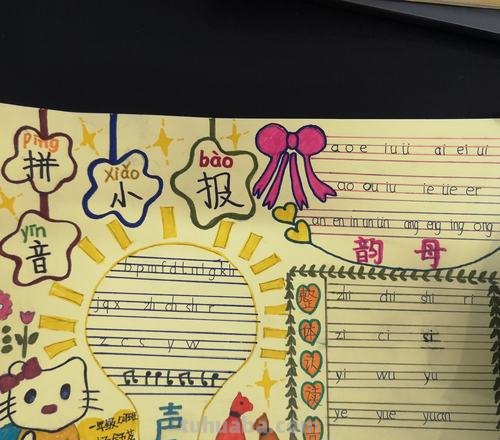 pīng
拼
yīn
音
xiǎo
小
bào
报
a o e i u ü ai ei ui
ao ou iu ie üe er
an en in un ün ang eng ing ong
韵母
b p m f d t n l g k h
j q x zh ch sh r
z c s y w
声
整
体
认
读
zhi chi shi ri
zi ci si
yi wu yu
ye yue yuan
tuhuaba.com